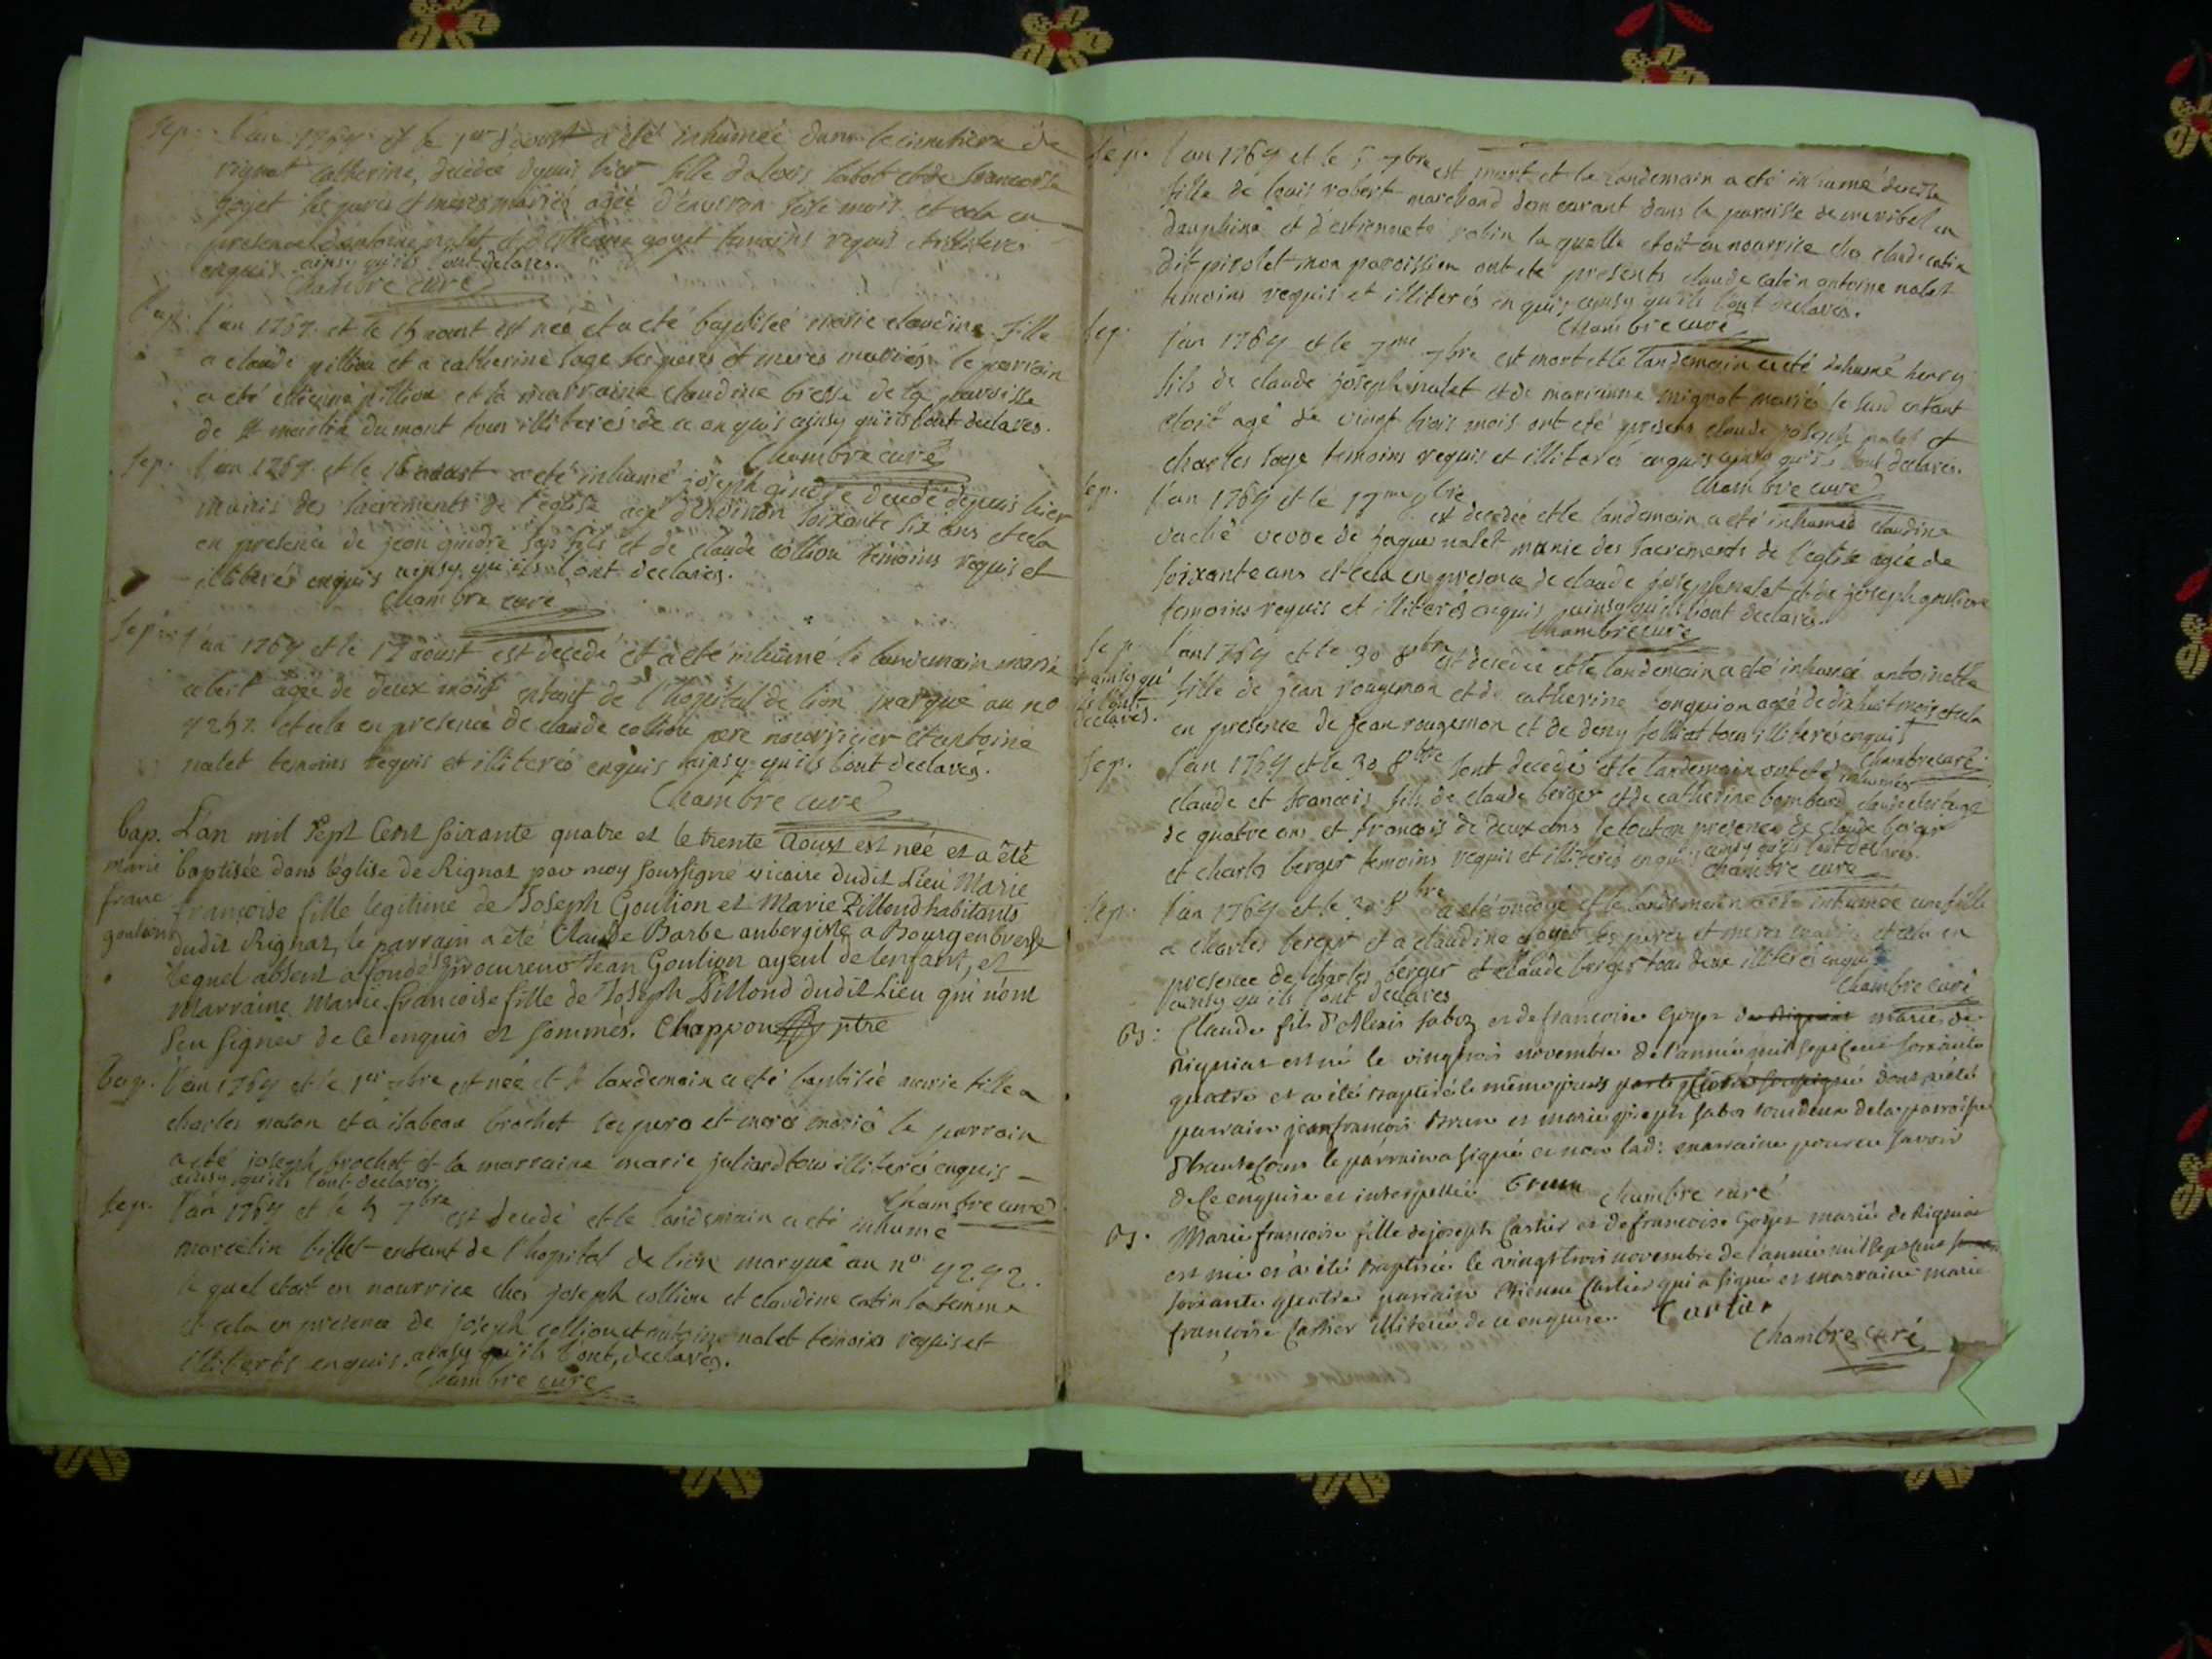 Sep. l'an 1764 et le 1er d'aoust a été inhumeé dans le cimetiere de
rignat catherine, decedeé depuis hier fille d'alexis sabot et de francoise
goyet ses peres et meres mariés ageé d'environ mois et cela en
presence d'antoine nalet et d' goyet temoins requis et illiterés
enquis ainsy qu'ils l'ont declarés.
Chambre curé
Bap. l'an 1764 et le 15 aout est neé et a eté baptiseé marie claudine fille
a claude pillion et a catherine sage ses peres et meres mariés le parrain
a eté etienne pillion et la marraine claudine bresse de la paroisse
de st martin du mont tous illiterés de ce enquis ainsy qu'ils l'ont declarés.
Chambre curé
Sep. l'an 1764 et le 16 aoust a eté inhumé joseph gindre decedé depuis hier
munis des sacrements de l'eglise agé d'environ soixante six ans et cela
en presence de jean gindre son fils et de claude collion temoins requis et
illiterés enquis ainsy qu'ils l'ont declarés.
Chambre curé
Sep. l'an 1764 et le 17 aoust est decedé et a eté inhumé le landemain marie
agé de deux mois enfant de l'hopital de lion marqué au no
et cela en presence de claude collion pere nourricier et antoine
nalet temoins requis et illiterés enquis ainsy qu'ils l'ont declarés.
Chambre curé
bap. L'an mil sept cent soixante quatre et le trente Aoust est neé et a été
marie baptisée dans l'église de Rignat par moy soussigné vicaire dudit Lieu Marie
franc françoise fille legitime de Joseph Goulion et Marie Pillond habitants
goulion dudit Rignat, le parrain a été Claude Barbe aubergiste a Bourg en bresse
lequel absent a fondé procureur Jean Goulion ayeul de lenfant, et
Marraine Marie françoise fille de Joseph Pillond dudit Lieu qui n'ont
seu signer de ce enquis et sommés. Chappon ptre
Bap. l'an 1764 et le 1er 7bre est neé et le landemain a eté baptiseé marie fille a
charles naton et a isabeau brochet ses pere et mere mariés le parrain
a eté joseph brochet et la marraine marie juliard tous illiterés enquis
ainsy qu'ils l'ont declarés.
Chambre curé
Sep. l'an 1764 et le 5 7bre est decedé et le landemain a eté inhumé
marcelin billet enfant de l'hopital de lion marqué au no 4292.
le quel etoit en nourrice ches joseph collion et claudine catin sa femme
et cela en presence de joseph collion et antoine nalet temoins requis et
illiterés enquis. ainsy qu'ils l'ont declarés.
Chambre curé
Sep. l'an 1764 et le 5 7bre est mort et le landemain a eté inhumé
fille de louis robert marchand demeurant dans la paroisse de miribel en
dauphiné et d'estiennete robin la quelle etoit en nourrice ches claude catin
dit pirolet mon paroissien ont eté presents claude catin antoine nalet
temoins requis et illiterés enquis ainsy qu'ils l'ont declarés.
Chambre curé
Sep. l'an 1764 et le 7me 7bre est mort et le landemain a eté inhumé henry
fils de claude joseph nalet et de marianne mignot mariés le sud enfant
etoit agé de vingt trois mois ont eté presens claude joseph nalet et
charles sage temoins requis et illiterés enquis ainsy qu'ils l'ont declarés.
Chambre curé
Sep. l'an 1764 et le 17me 8bre est decedeé et le landemain a eté inhumeé claudine
vaché veuve de jaques nalet munie des sacrements de l'eglise ageé de
soixante ans et cela en presence de claude joseph nalet et de joseph goulion
temoins requis et illiterés enquis ainsy qu'ils l'ont declarés.
Chambre curé
Sep. l'an 1764 et le 30 8bre est decedeé et le landemain a eté inhumeé antoinette
fille de jean rougemon et de catherine agé de dix huit mois et cela
en presence de jean rougemon et de deny tous illiterés enquis
+ ainsy qu'
ils l'ont
declarés.
Chambre curé
Sep. l'an 1764 et le 30 8bre sont decedés et le landemain ont eté inhumés
claude et francois fils de claude berger et de catherine bombard claude
de quatre ans et francois de deux ans le tout en presence de claude berger
et charles berger temoins requis et illiterés enquis ainsy qu'ils l'ont declarés.
Chambre curé
Sep. l'an 1764 et le 30 8bre a eté ondoyé et le landemain a eté inhumeé une fille
a charles berger et a claudine goyet ses peres et meres mariés et cela en
presence de charles berger et claude berger tous deux illiterés enquis
ainsy qu'ils l'ont declarés
Chambre curé
B: Claude fils d'Alexis sabot et de francoise Goyet mariés de
Rigniat est né le vingtrois novembre de l'année mil sept cent soixante
quatre et a été baptisé le même jour dont a été
parrain jean francois Brun et marie joseph sabot tous deux de la parroisse
d'hautecour le parrain a signé et non lad: marraine pour ne savoir
de ce enquise et interpellée Brun Chambre curé
B. Marie francoise fille de joseph Cartier et de francoise Goyet mariés de Rigniat
est née et a été baptisée le vingt trois novembre de l'année mil sept cent
soixante quatre parrain Etienne Cartier qui a signé et marraine marie
francoise Cartier illiterée de ce enquise Cartier
Chambre curé